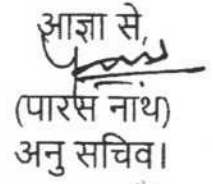 आज्ञा से,
(पारस नाथ)
अनु सचिव।